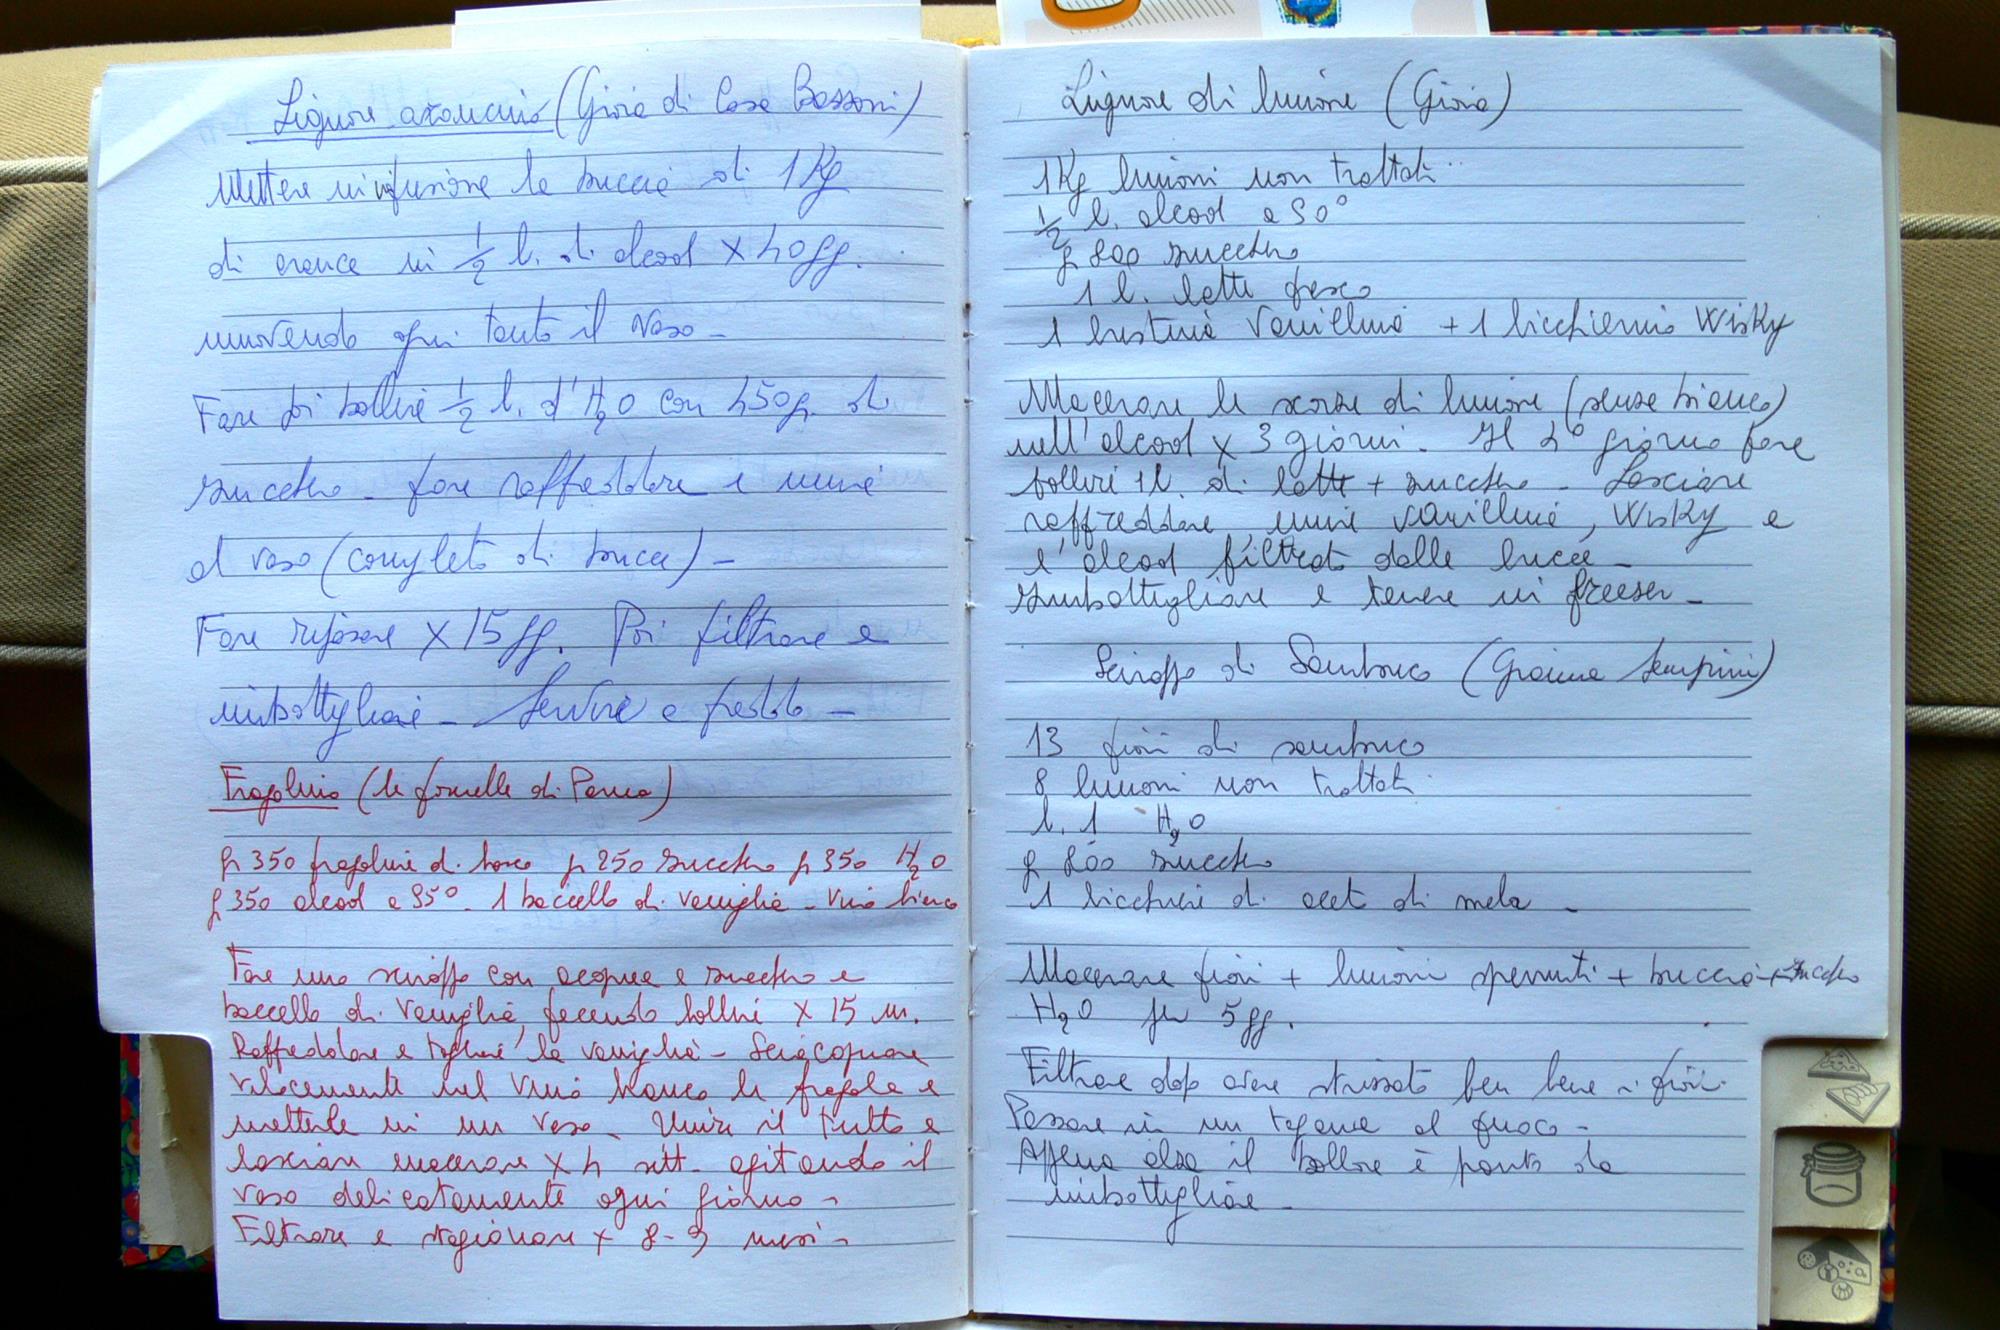 Liquore arancino (Gioia di Casa Bassoni)
Mettere in infusione le buccie di 1 Kg
di arance in ½ l. di alcool x 40 gg.
muovendo ogni tanto il vaso -
Fare poi bollire ½ l. d'H₂O con 450 g. di
zucchero - fare raffreddare e unire
al vaso (completo di bucce) -
Fare riposare x 15 gg. Poi filtrare e
imbottigliare - Servire a freddo -
Fragolino (le forcelle di Parma)
g 350 fragoline di bosco g 250 zucchero g 350 H₂O
g 350 alcool a 95°. 1 baccello di vaniglia - vino bianco
Fare uno sciroppo con acqua e zucchero e
baccello di vaniglia, facendo bollire x 15 m.
Raffreddare e togliere la vaniglia - Sciacquare
velocemente nel vino bianco le fragole e
metterle in un vaso - Unire il tutto e
lasciare macerare x 4 sett. agitando il
vaso delicatamente ogni giorno -
Filtrare e stagionare x 8-9 mesi -
Liquore di limone (Gioia)
1 Kg limoni non trattati
½ l. alcool a 90°
g 800 zucchero
1 l. latte fresco
1 bustina vanillina + 1 bicchierino Wisky
Macerare le scorze di limone (senza bianco)
nell'alcool x 3 giorni. Il 4° giorno fare
bollire 1 l. di latte + zucchero - Lasciare
raffreddare, unire vanillina, Wisky e
l'alcool filtrato dalle bucce -
Imbottigliare e tenere in freezer -
Sciroppo di Sambuco (Gianna Semprini)
13 fiori di sambuco
8 limoni non trattati
l. 1 H₂O
g 800 zucchero
1 bicchiere di aceto di mela -
Macerare fiori + limoni spremuti + buccia + zucchero
H₂O per 5 gg.
Filtrare dopo avere strizzato ben bene i fiori.
Passare in un tegame al fuoco -
Appena alza il bollore è pronto da
imbottigliare -